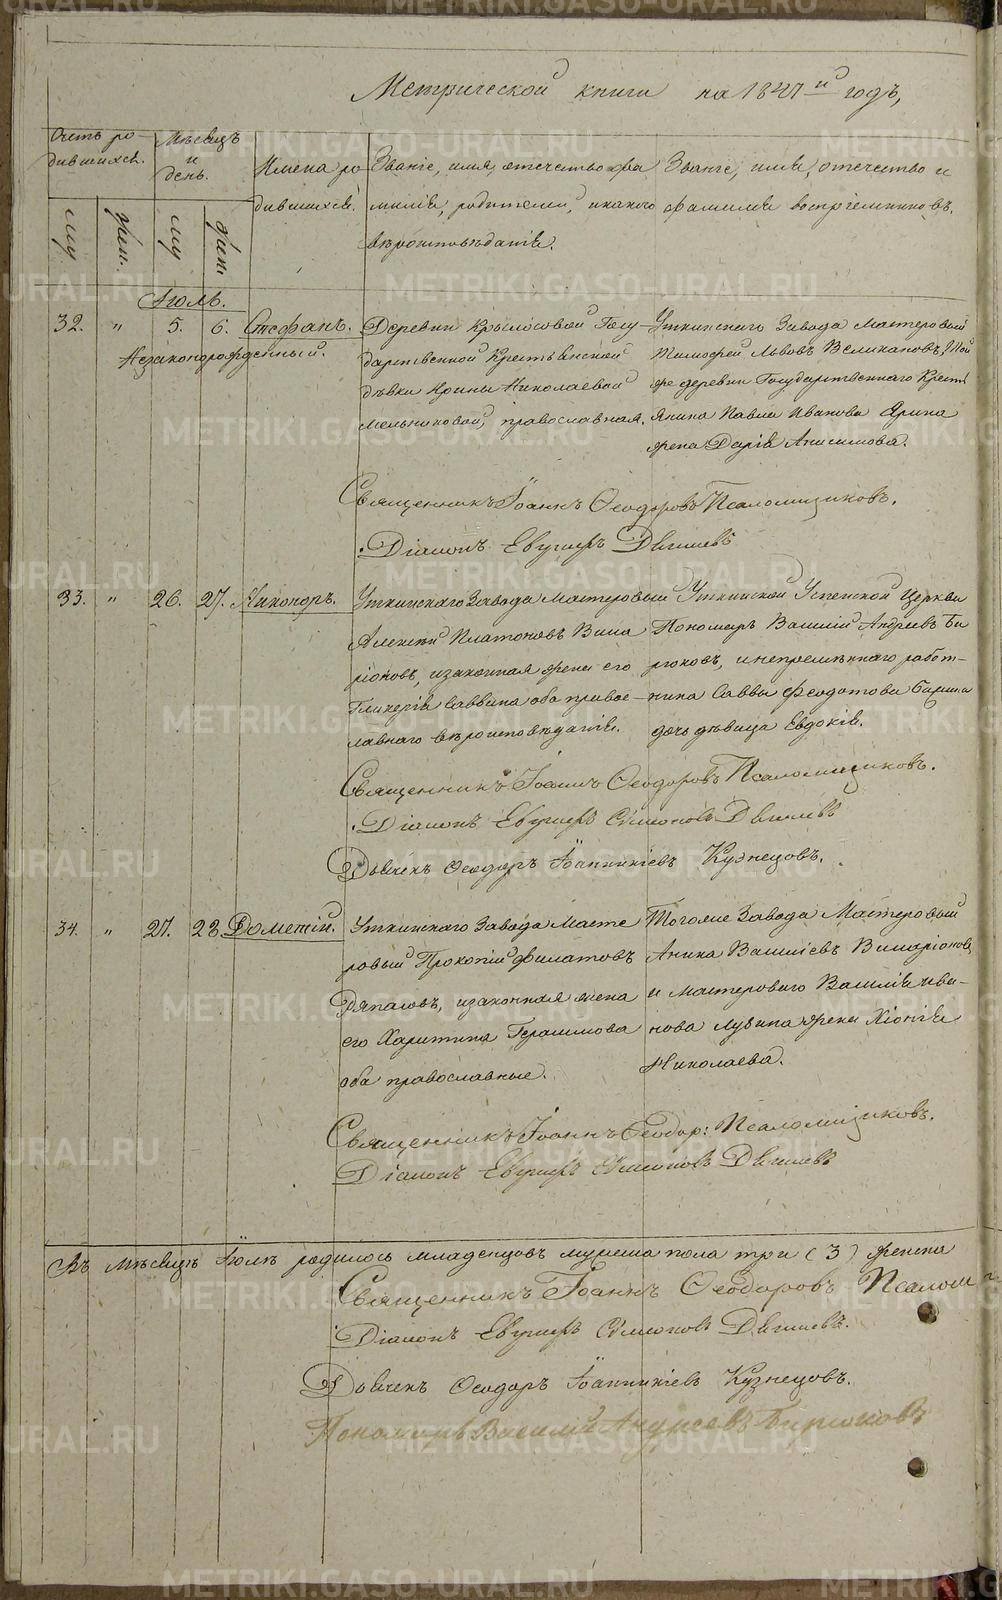 Метрической книги на 1847й годъ,
Счетъ ро-
дившихся.
Мѣсяцъ
и
день.
Имена ро
дившихся.
Званіе, имя, отечество и фа
милія, родителей, и какого
вѣроисповѣданія.
Званіе, имя, отечество и
фамилія воспріемниковъ.
Іюль.
32. " 5. 6. Стефанъ.
Незаконорожденный.
Деревни Крылосовой Госу-
дарственной Крестьянской
дѣвки Ирины Николаевой
Мельниковой, православная.
Уткинскаго Завода Мастеровый
Тимофей Львовъ Великановъ, Той
же деревни Государственнаго Кресть
янина Павла Иванова Ярина
жена Дарія Анисимова.
Священникъ Іоаннъ Ѳеодоровъ Псаломщиковъ.
Діаконъ Евгрифъ Двинѣвъ
33. " 26. 27. Никоноръ.
Уткинскаго Завода Мастеровый
Алексѣй Платоновъ Вила
ріоновъ, и законная жена его
Гликерія Саввина оба правос-
лавнаго вѣроисповѣданія.
Уткинской Успенской Церкви
Пономарь Василій Андреевъ Би
рюковъ, и непремѣннаго работ-
ника Саввы Феодотова
дочь дѣвица Евдокія.
Священникъ Іоаннъ Ѳеодоровъ Псаломщиковъ.
Діаконъ Евгрифъ Симеоновъ Двинѣвъ
Дьячекъ Ѳеодоръ Іоанникіевъ Кузнецовъ.
34. " 27. 28. Дометій.
Уткинскаго Завода Масте
ровый Прокопій Филатовъ
и законная жена
его Харитина Герасимова
оба православные.
Тогоже Завода Мастеровый
Аника Василіевъ Виларіоновъ,
и Мастероваго Василія Ива-
нова Лузина жена Хіонія
Николаева.
Священникъ Іоаннъ Ѳеодор: Псаломщиковъ.
Діаконъ Евгрифъ Симеоновъ Двинѣвъ
Въ мѣсяцѣ Іюлѣ родилось младенцовъ мужеска пола три (3) женска
Священникъ Іоаннъ Ѳеодоровъ Псалом
Діаконъ Евгрифъ Симеоновъ Двинѣвъ.
Дьячекъ Ѳеодоръ Іоанникіевъ Кузнецовъ.
Пономарь Василій Андреевъ Бирюковъ
METRIKI.GASO-URAL.RU